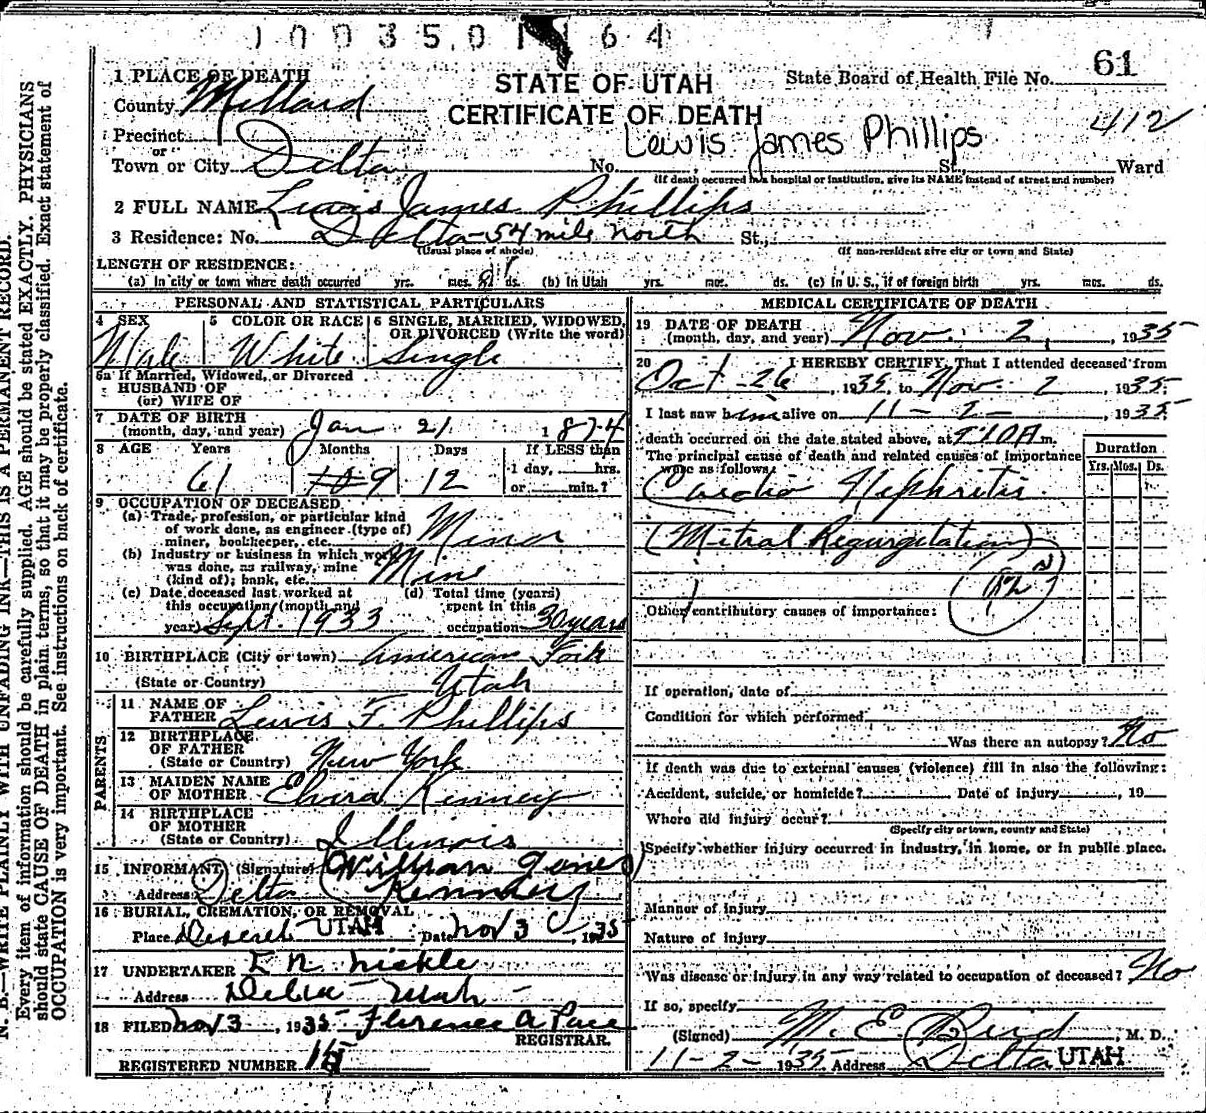 1003501164
N. B.—WRITE PLAINLY WITH UNFADING INK—THIS IS A PERMANENT RECORD.
Every item of information should be carefully supplied. AGE should be stated EXACTLY. PHYSICIANS
should state CAUSE OF DEATH in plain terms, so that it may be properly classified. Exact statement of
OCCUPATION is very important. See instructions on back of certificate.
STATE OF UTAH
CERTIFICATE OF DEATH
State Board of Health File No. 61
412
1 PLACE OF DEATH
County Millard
Precinct
or
Town or City Delta No. St., Ward
Lewis James Phillips
(If death occurred in a hospital or institution, give its NAME instead of street and number)
2 FULL NAME Lewis James Phillips
3 Residence: No. Delta - 54 mile north St.,
(Usual place of abode) (If non-resident give city or town and State)
LENGTH OF RESIDENCE:
(a) In city or town where death occurred yrs. mos. ds. (b) In Utah yrs. mos. ds. (c) In U. S., if of foreign birth yrs. mos. ds.
PERSONAL AND STATISTICAL PARTICULARS
4 SEX Male
5 COLOR OR RACE White
6 SINGLE, MARRIED, WIDOWED, OR DIVORCED (Write the word) Single
6a If Married, Widowed, or Divorced
HUSBAND OF
(or) WIFE OF
7 DATE OF BIRTH
(month, day, and year) Jan 21 1874
8 AGE Years Months Days If LESS than
1 day, hrs.
or min.?
61 10 9 12
9 OCCUPATION OF DECEASED
(a) Trade, profession, or particular kind
of work done, as engineer (type of)
miner, bookkeeper, etc. Minor
(b) Industry or business in which work
was done, as railway, mine
(kind of); bank, etc. Mine
(c) Date deceased last worked at
this occupation (month and
year) Sept. 1933
(d) Total time (years)
spent in this
occupation 30 years
10 BIRTHPLACE (City or town) American Fork
(State or Country) Utah
PARENTS
11 NAME OF
FATHER Lewis F. Phillips
12 BIRTHPLACE
OF FATHER
(State or Country) New York
13 MAIDEN NAME
OF MOTHER Kenney
14 BIRTHPLACE
OF MOTHER
(State or Country) Illinois
15 INFORMANT (Signature) William Jones
Address Delta
16 BURIAL, CREMATION, OR REMOVAL
Place Deseret UTAH Date Nov 3, 1935
17 UNDERTAKER E N Nickle
Address Delta Utah
18 FILED Nov 3, 1935 Florence A Pace
REGISTRAR.
REGISTERED NUMBER 15
MEDICAL CERTIFICATE OF DEATH
19 DATE OF DEATH
(month, day, and year) Nov. 2, 1935
20 I HEREBY CERTIFY, That I attended deceased from
Oct 26, 1935 to Nov. 2, 1935.
I last saw him alive on 11-2-, 1935.
death occurred on the date stated above, at 910A m.
The principal cause of death and related causes of importance
were as follows:
Duration
Yrs. Mos. Ds.
Cardio Nephritis
(Mitral Regurgitation)
Other contributory causes of importance:
If operation, date of
Condition for which performed
Was there an autopsy? No
If death was due to external causes (violence) fill in also the following:
Accident, suicide, or homicide? Date of injury, 19
Where did injury occur?
(Specify city or town, county and State)
Specify whether injury occurred in industry, in home, or in public place.
Manner of injury
Nature of injury
Was disease or injury in any way related to occupation of deceased? No
If so, specify
(Signed) M. E. Bird, M. D.
11-2-1935 Address Delta UTAH